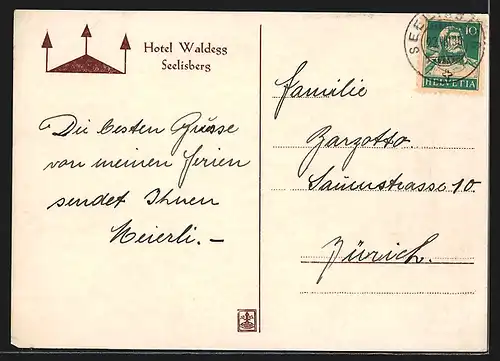 Hotel Waldegg
Seelisberg
Die besten Grüsse
von meinen Ferien
sendet Ihnen
Meierli. –
10
HELVETIA
Familie
Zargotto.
10
Zürich.